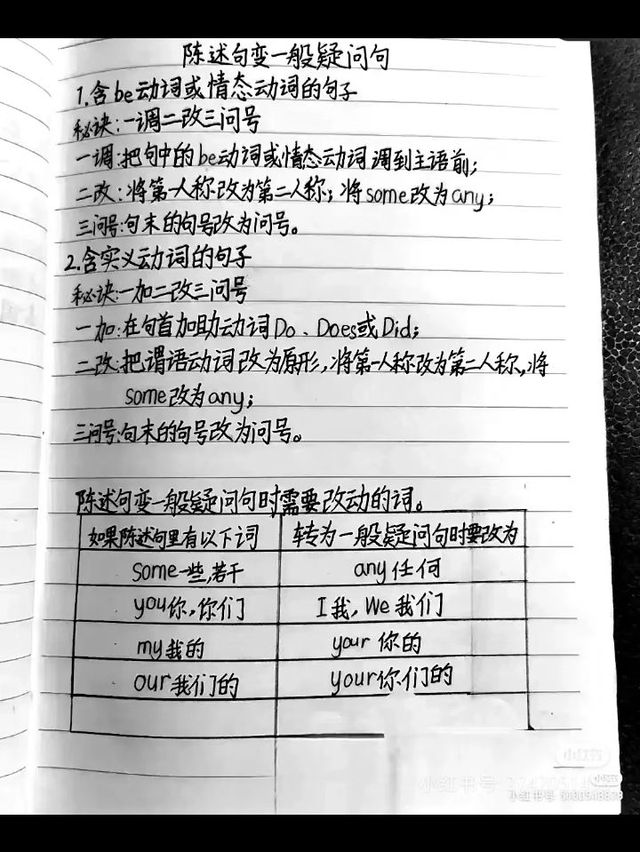 陈述句变一般疑问句
1.含be动词或情态动词的句子
秘诀:一调二改三问号
一调:把句中的be动词或情态动词调到主语前;
二改:将第一人称改为第二人称;将some改为any;
三问号:句末的句号改为问号。
2.含实义动词的句子
秘诀:一加二改三问号
一加:在句首加助动词Do、Does或Did;
二改:把谓语动词改为原形,将第一人称改为第二人称,将
some改为any;
三问号:句末的句号改为问号。
陈述句变一般疑问句时需要改动的词。
如果陈述句里有以下词 转为一般疑问句时要改为
some一些,若干 any任何
you你,你们 I我,We我们
my我的 your你的
our我们的 your你们的
小红书
小红书号
小红书
小红书号